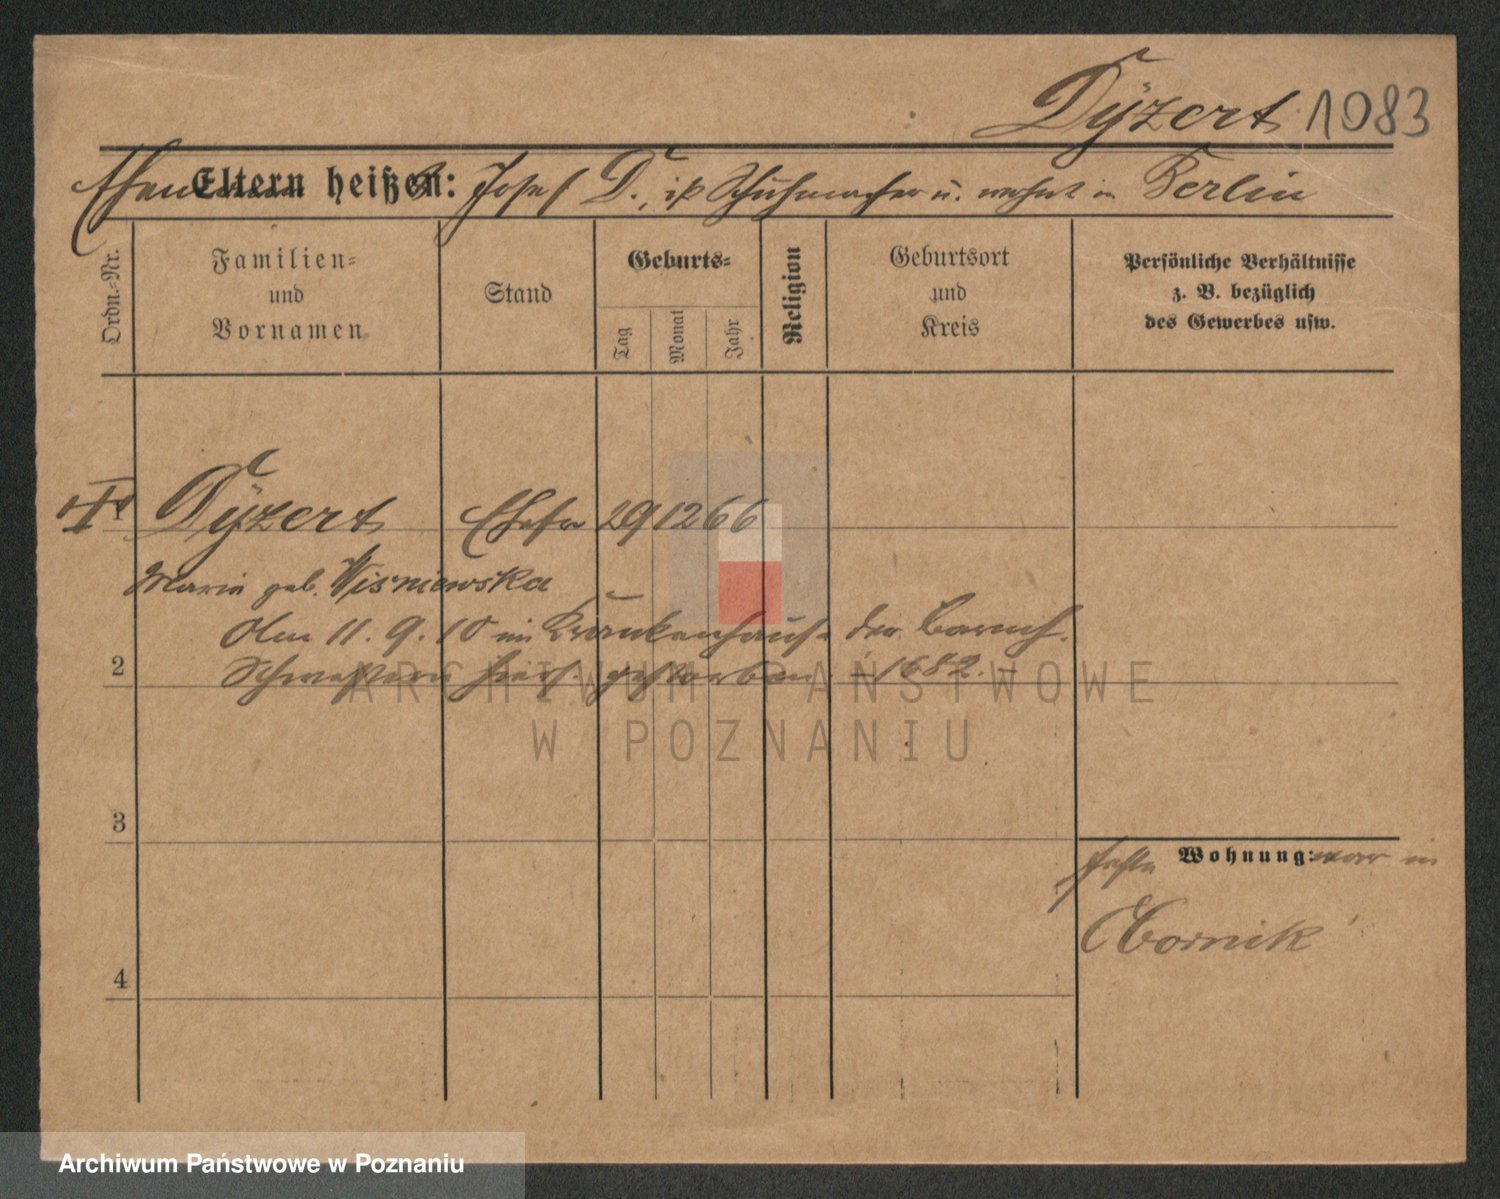 Dÿzert 1083
Eltern heißen: Josef D., ist Schuhmacher u. wohnt in Berlin
Ordn.-Nr.
Familien- und Vornamen
Stand
Geburts-
Tag
Monat
Jahr
Religion
Geburtsort und Kreis
Persönliche Verhältnisse
z. B. bezüglich
des Gewerbes usw.
1 Dÿzert Ehefr 29 12 66
Maria geb. Wisniewska
Am 11. 9. 10 im Krankenhause der Barmh.
2 Schwestern hier gestorben. - 1682. -
3
Wohnung: war in
Obornik
4
ARCHIWUM PAŃSTWOWE
W POZNANIU
Archiwum Państwowe w Poznaniu